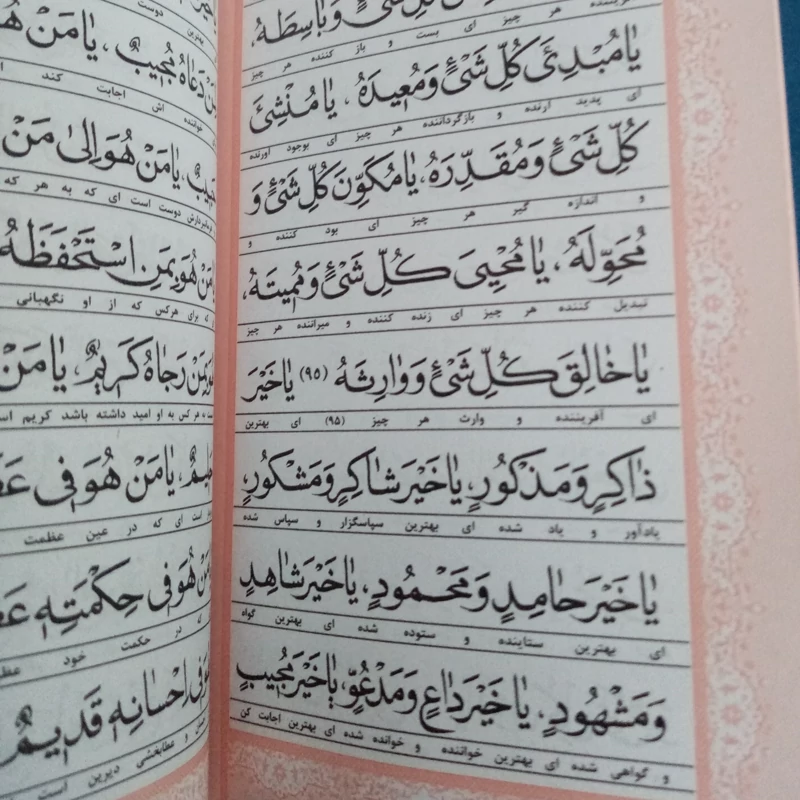 كُلِّ شَیْءٍ وَبَاسِطَهُ،
هر چیز ای بست و باز کننده هر چیز
يٰا مُبْدِئَ كُلِّ شَیْءٍ وَمُعيدَهُ، يٰا مُنْشِئَ
ای پدید آرنده و بازگرداننده هر چیز ای بوجود آورنده
كُلِّ شَیْءٍ وَمُقَدِّرَهُ، يٰا مُكَوِّنَ كُلِّ شَیْءٍ وَ
و اندازه گیر هر چیز ای بود کننده و
مُحَوِّلَهُ، يٰا مُحْيِیَ كُلِّ شَیْءٍ وَمُميتَهُ،
تبدیل کننده هر چیز ای زنده کننده و میراننده هر چیز
يٰا خٰالِقَ كُلِّ شَیْءٍ وَوٰارِثَهُ (٩٥) يٰا خَيْرَ
ای آفریننده و وارث هر چیز (۹۵) ای بهترین
ذٰاكِرٍ وَمَذْكُورٍ، يٰا خَيْرَ شٰاكِرٍ وَمَشْكُورٍ،
یادآور و یاد شده ای بهترین سپاسگزار و سپاس شده
يٰا خَيْرَ حٰامِدٍ وَمَحْمُودٍ، يٰا خَيْرَ شٰاهِدٍ
ای بهترین ستاینده و ستوده شده ای بهترین گواه
وَمَشْهُودٍ، يٰا خَيْرَ دٰاعٍ وَمَدْعُوٍّ، يٰا خَيْرَ مُجيبٍ
و گواهی شده ای بهترین خواننده و خوانده شده ای بهترین اجابت کن
بهترین دوست
دَعٰاهُ مُجيبٌ، يٰا مَنْ
خواننده اش اجابت کند
يٰا مَنْ هُوَ اِلىٰ مَنْ
دوست است ای که به هر که
هُوَ بِمَنِ اسْتَحْفَظَهُ
که برای هرکس که از او نگهبانی
بِمَنْ رَجٰاهُ كَريمٌ، يٰا مَنْ
هر کس به او امید داشته باشد کریم
يٰا مَنْ هُوَ فی
است ای که در عین عظمت
هُوَ فی حِكْمَتِهِ
که در حکمت خود
فی اِحْسٰانِهِ قَديمٌ
و عطابخشی دیرین است